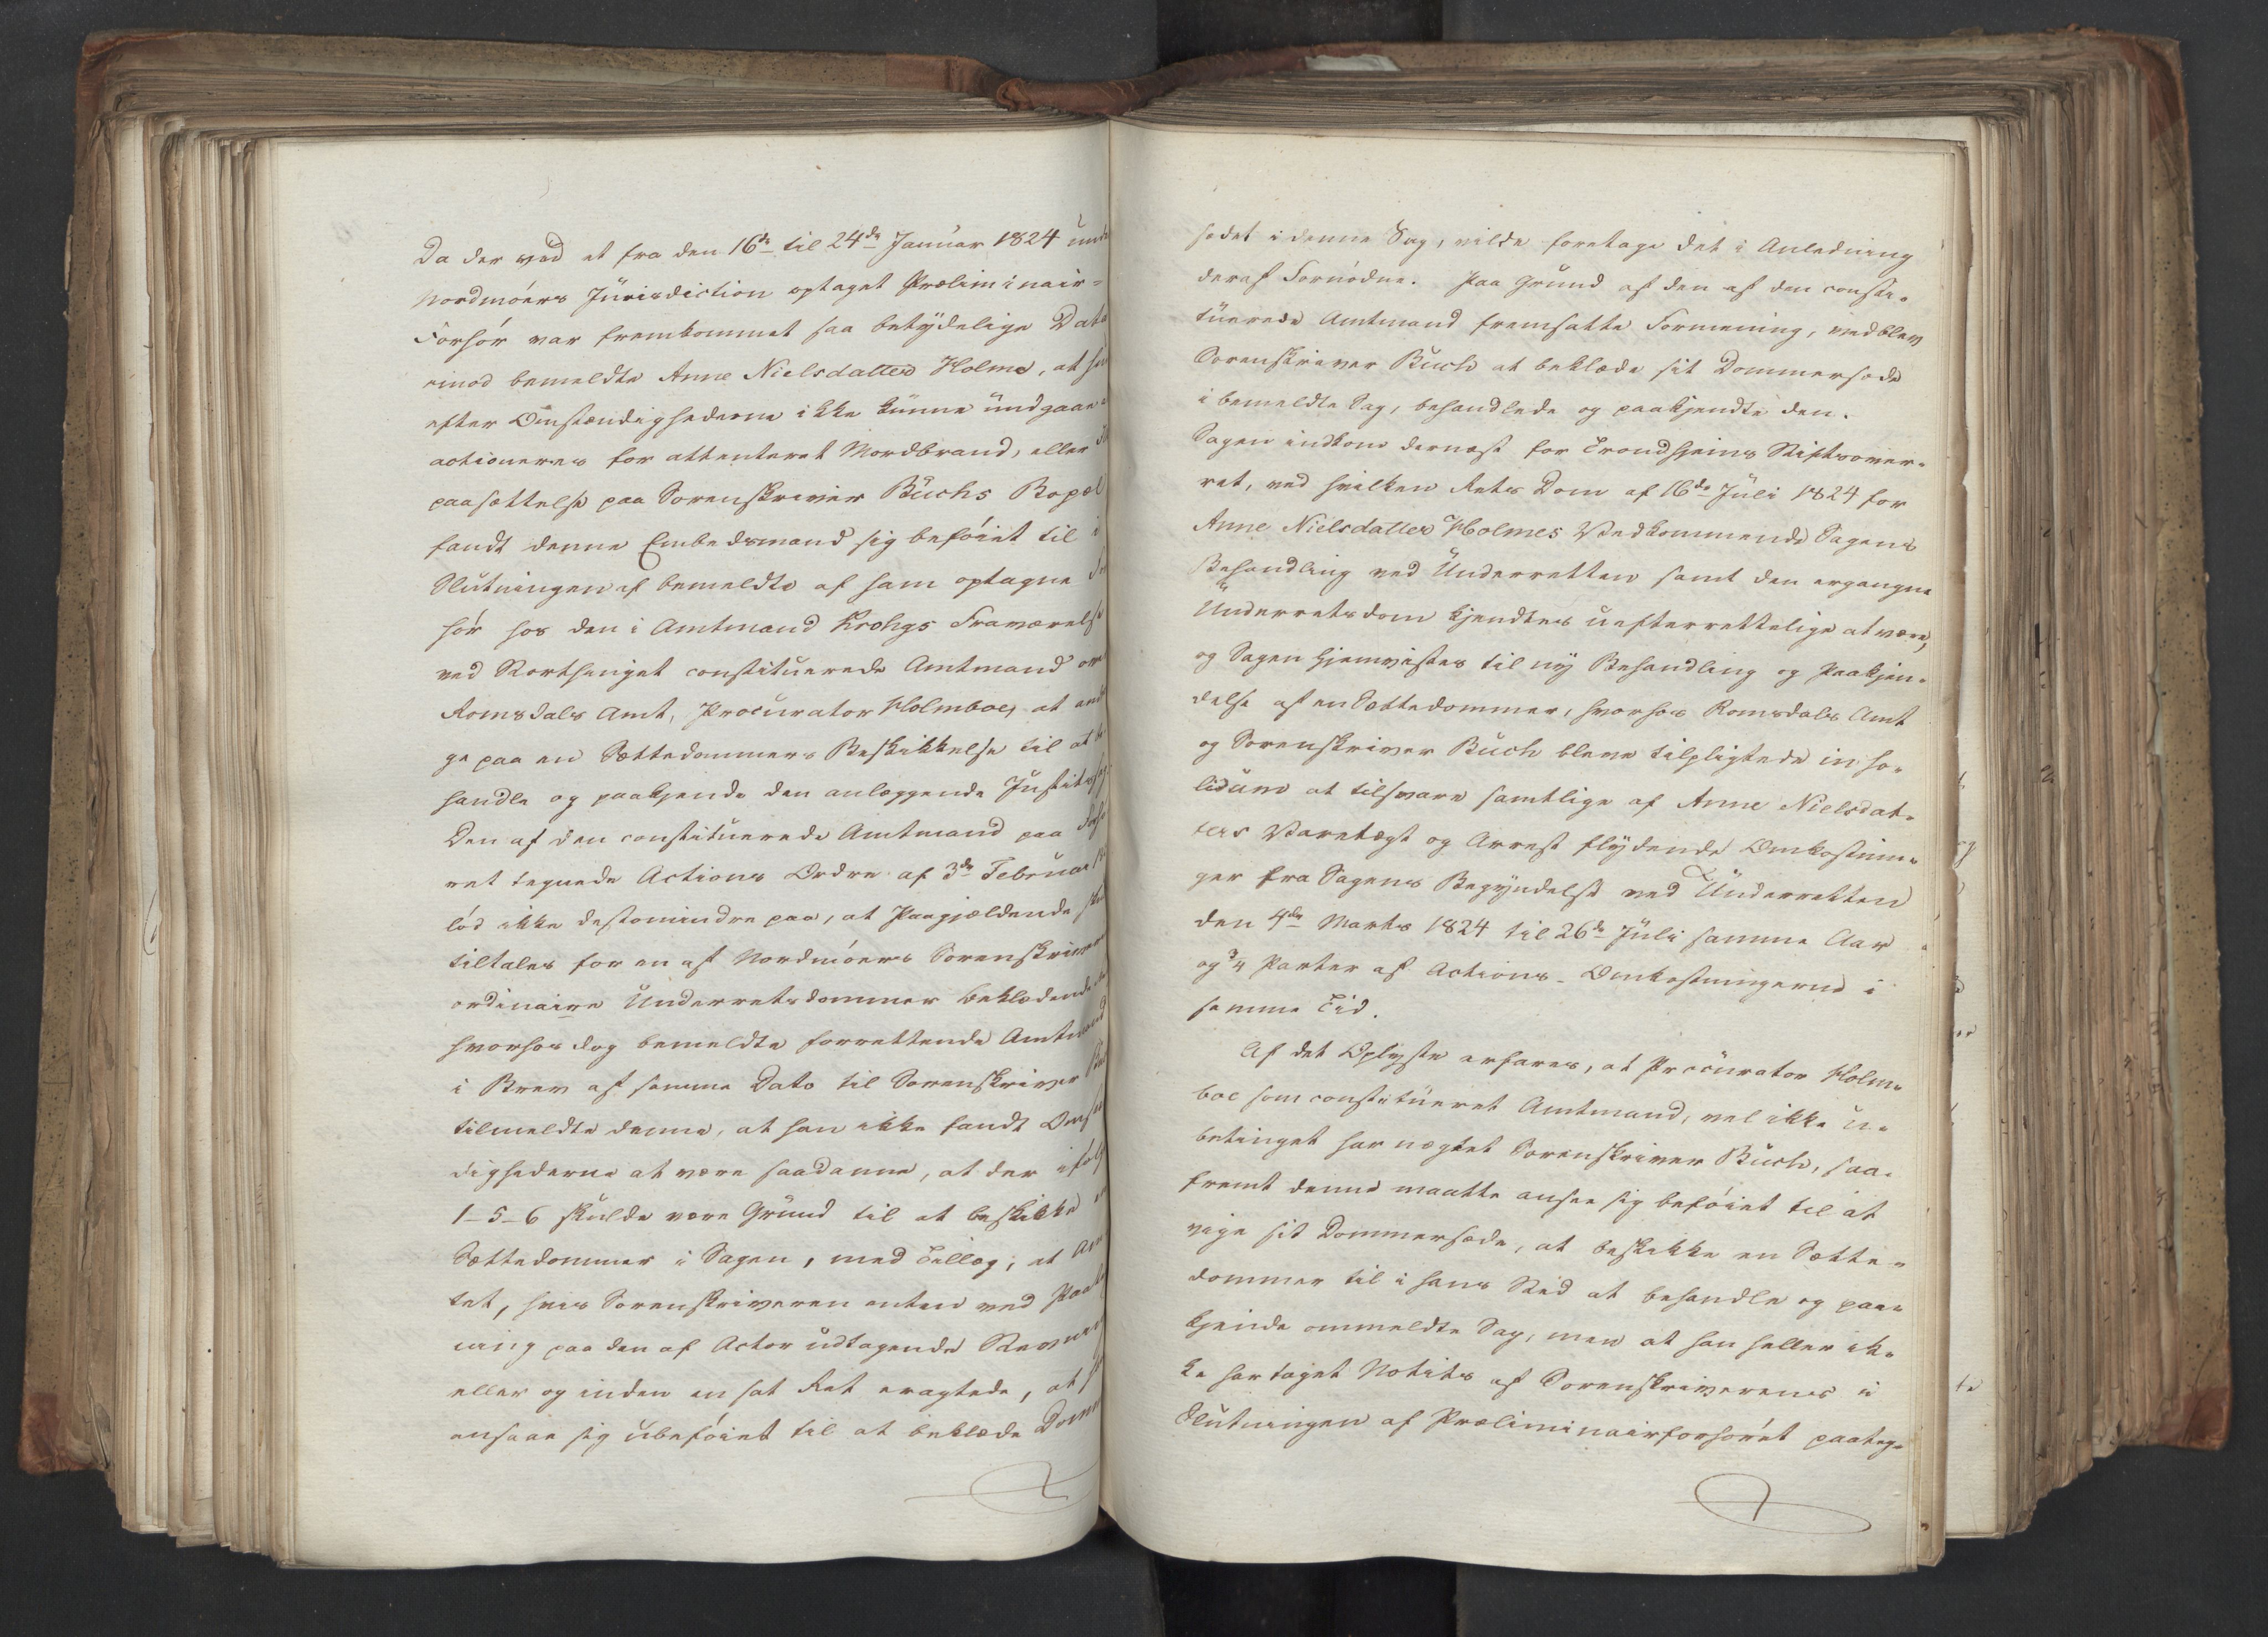 Da der ved et fra den 16de til 24de Januar 1824 unde
Nordmöers Jurisdiction optaget Præliminair-
Forhör var fremkommet saa betydelige Data
imod bemeldte Anne Nielsdatter Holme, at hun
efter Omstændighederne ikke kunne undgaae
actioneres for attenteret Mordbrand, eller
paasættelse paa Sorenskriver Buchs Bopæl
fandt denne Embedsmand sig beföiet til i
Slutningen af bemeldte af ham optagne For
hör hos den i Amtmand Krohgs Fraværelse
ved Storthinget constituerede Amtmand over
Romsdals Amt, Procurator Holmboe, at andra
ge paa en Sættedommers Beskikkelse til at be
handle og paakjende den anlæggende Justitssag.
Den af den constituerede Amtmand paa Forhö
ret tegnede Actions Ordre af 3de Februar
löd ikke destomindre paa, at Paagjældende skul
tiltales for en af Nordmöers Sorenskriver
ordinaire Underretsdommer beklædende
hvorhos dog bemeldte forrettende Amtmand
i Brev af samme Dato til Sorenskriver Buch
tilmeldte denne, at han ikke fandt Omstæn
dighederne at være saadanne, at der ifölge
1-5-6 skulde være Grund til at beskikke en
Sættedommer i Sagen, med Tillæg, at Am
tet, hvis Sorenskriveren enten ved Paateg
ning paa den af Actor udtagende Stevning
eller og inden en sat Ret eragtede, at
ansaae sig ubeföiet til at beklæde Domm
sædet i denne Sag, vilde foretage det i Anledning
deraf Fornödne. Paa Grund af den af den consti-
tuerede Amtmand fremsatte Formening, vedblev
Sorenskriver Buch at beklæde sit Dommersæde
i bemeldte Sag, behandlede og paakjendte den.
Sagen indkom dernæst for Trondhjems Stiftsover-
ret, ved hvilken Rets Dom af 16de Juli 1824 for
Anne Nielsdatter Holmes Vedkommende Sagens
Behandling ved Underretten samt den ergangne
Underretsdom kjendtes uefterrettelige at være,
og Sagen hjemvistes til ny Behandling og Paakjen-
delse af en Sættedommer, hvorhos Romsdals Amt
og Sorenskriver Buch bleve tilpligtede in so-
lidum at tilsvare samtlige af Anne Nielsdat-
ters Varetægt og Arrest flydende Omkostnin-
ger fra Sagens Begyndelse ved Underretten
den 4de Marts 1824 til 26de Juli samme Aar
og 3/4 Parter af Actions-Omkostningerne i
samme Tid.
Af det Oplyste erfares, at Procurator Holm-
boe som constitueret Amtmand, vel ikke u-
betinget har nægtet Sorenskriver Buch, saa-
fremt denne maatte ansee sig beföiet til at
vige sit Dommersæde, at beskikke en Sætte-
dommer til i hans Sted at behandle og paa-
kjende ommeldte Sag, men at han heller ik-
ke har taget Notits af Sorenskriverens i
Slutningen af Præliminairforhöret paateg-